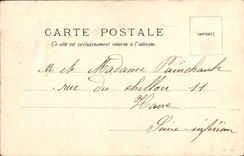 CARTE POSTALE
Ce côté est exclusivement réservé à l'adresse.
IMPRIMÉ
M et Madame
rue du chillou 11
Havre
Seine inférieure